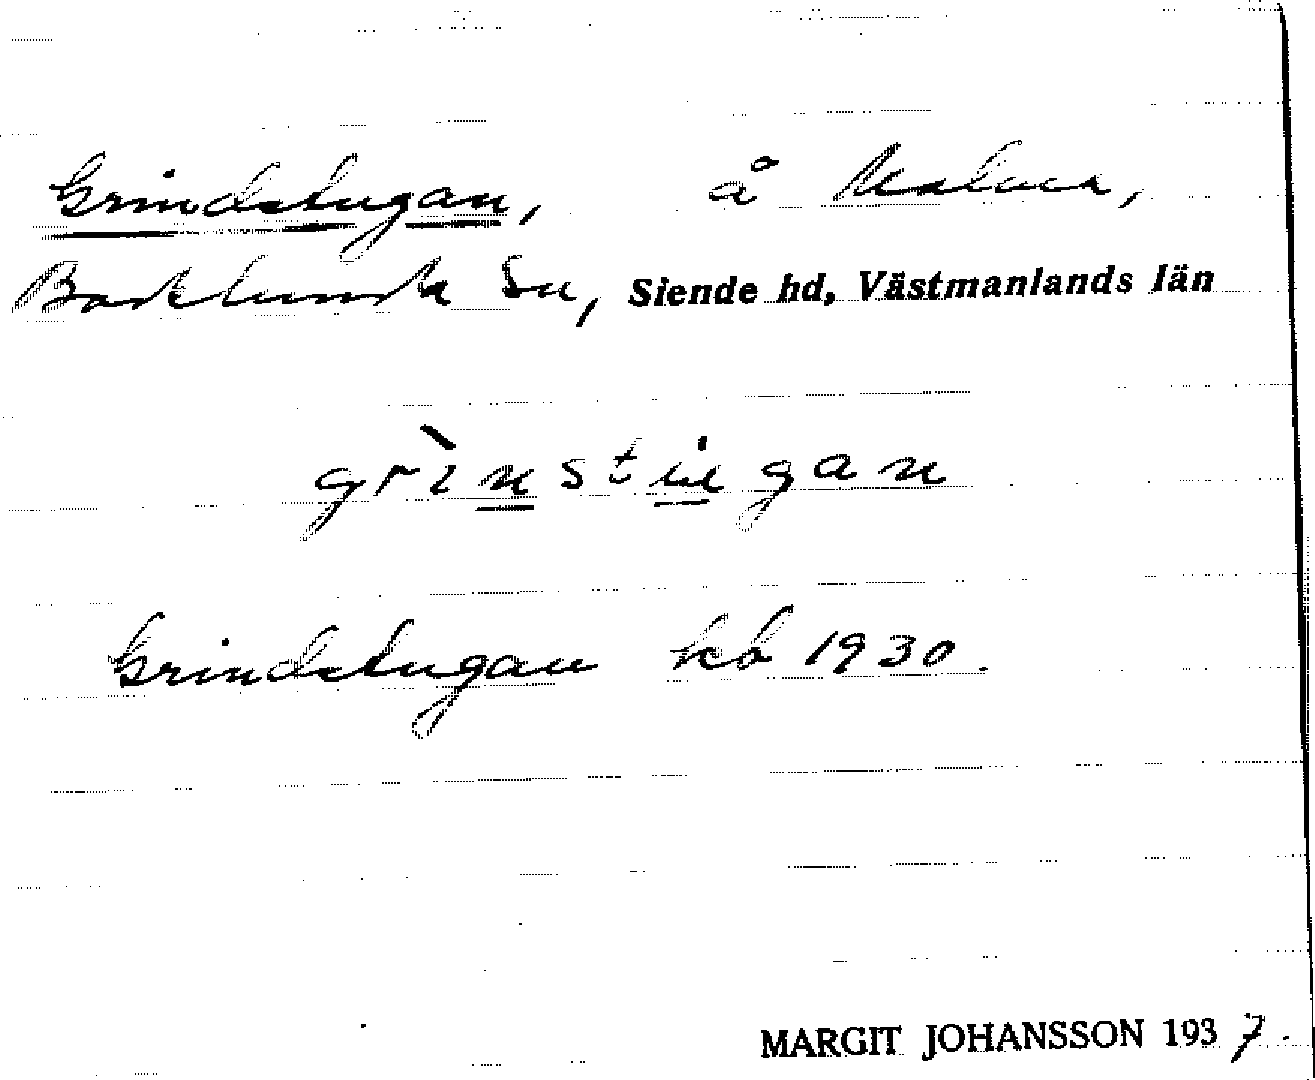 Grindstugan, å Malma,
Badelunda sn, Siende hd, Västmanlands län
grìnstu̇gan
Grindstugan kb 1930.
MARGIT JOHANSSON 1937.